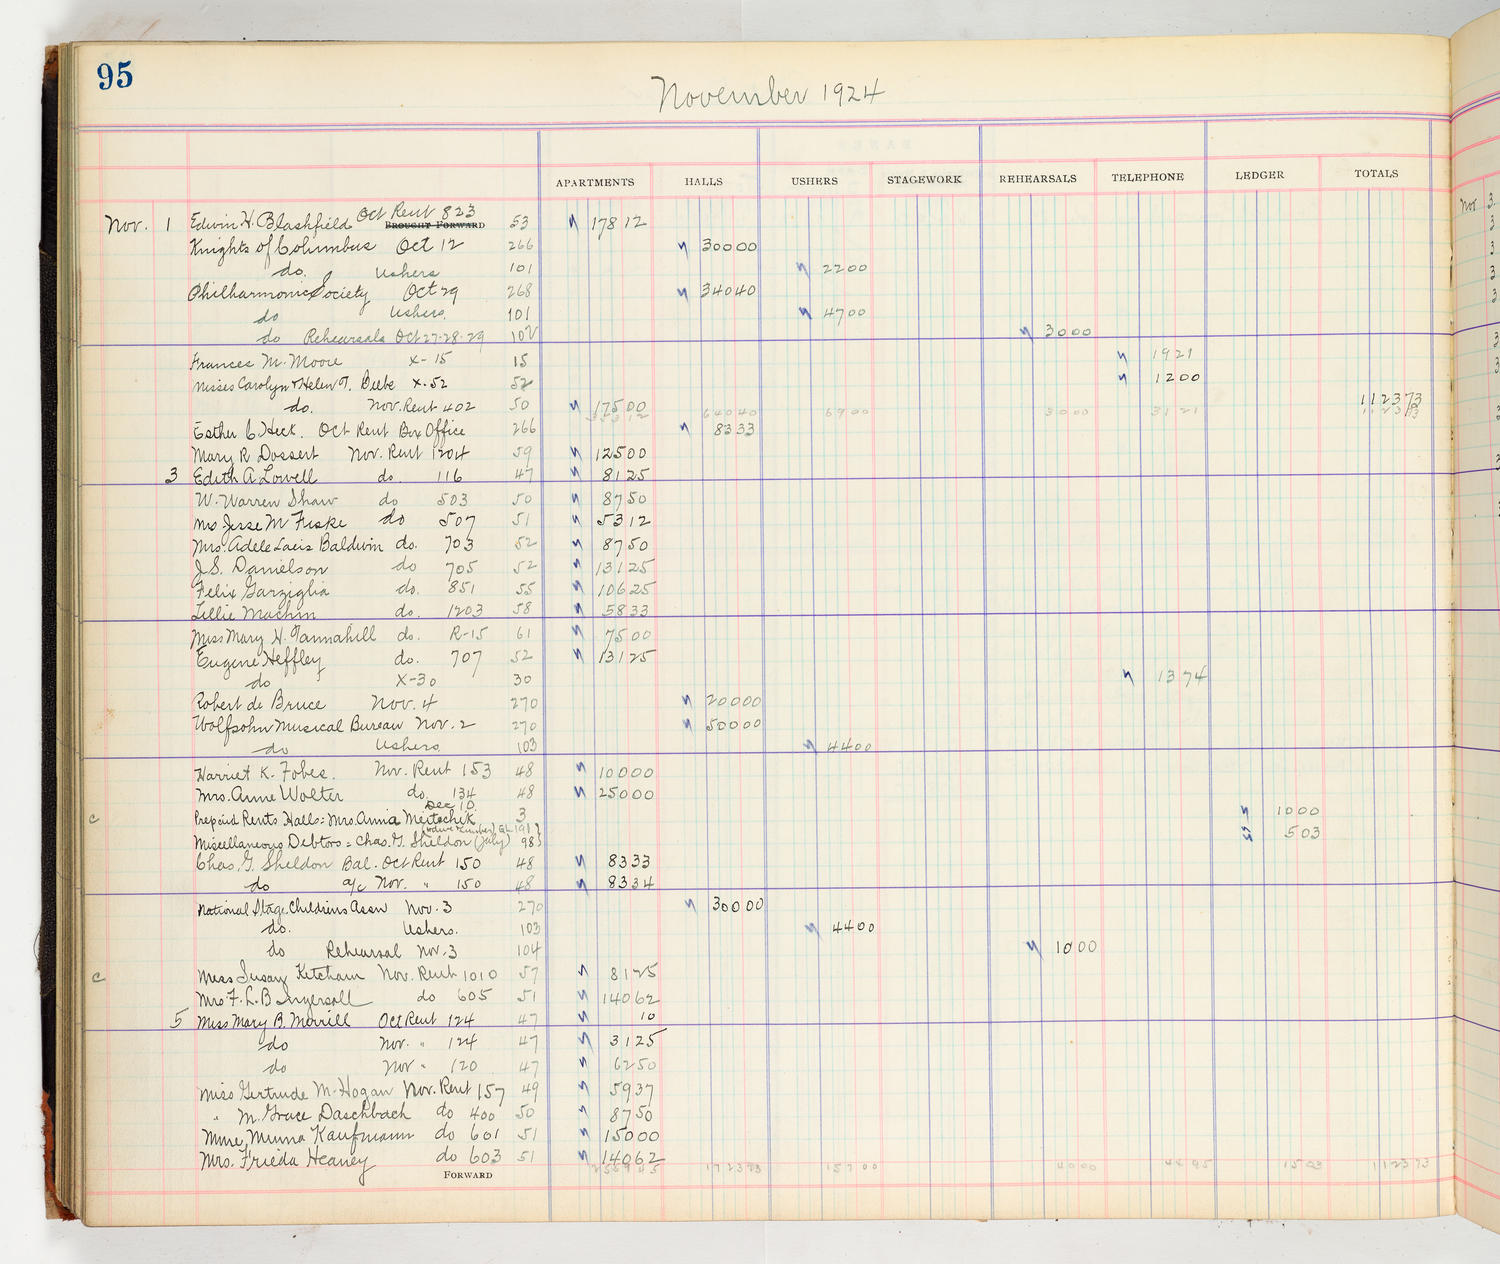 95
November 1924
APARTMENTS HALLS USHERS STAGEWORK REHEARSALS TELEPHONE LEDGER TOTALS
Nov. 1 Edwin H. Blashfield Oct Rent 823 53 178 12
BROUGHT FORWARD
Knights of Columbus Oct 12 266 300 00
do. Ushers 101 22 00
Philharmonic Society Oct 29 268 340 40
do Ushers. 101 47 00
do Rehearsals Oct 27-28-29 102 30 00
Frances M. Moore X-15 15 19 21
Misses Carolyn & Helen T. Beebe X-52 52 12 00
do. Nov. Rent 402 50 175 00 1123 73
353 12 640 40 69 00 30 00 31 21 1123 73
Esther C Heck. Oct Rent Box Office 266 83 33
Mary R Dossert Nov. Rent 1204 59 125 00
3 Edith A Lowell do 116 47 81 25
W. Warren Shaw do 503 50 87 50
Mrs Jesse M Fiske do 507 51 53 12
Mrs. Adele Laeis Baldwin do. 703 52 87 50
J.S. Danielson do 705 52 131 25
Felix Garziglia do. 851 55 106 25
Lillie Machin do. 1203 58 58 33
Miss Mary H. Tannahill do. R-15 61 75 00
Eugene Heffley do. 707 52 131 25
do X-30 30 13 74
Robert de Bruce Nov. 4 270 200 00
Wolfsohn Musical Bureau Nov. 2 270 500 00
do Ushers 103 44 00
Harriet K. Fobes. Nov. Rent 153 48 100 00
Mrs. Anne Wolter do. 134 48 250 00
Dec 10
c Prepaid Rents Halls: Mrs. Anna Meitschik 3 10 00
Miscellaneous Debtors = Chas. G. Sheldon (July) 98 5 03
Chas. G. Sheldon Bal. Oct Rent 150 48 83 33
do a/c Nov. " 150 48 83 34
National Stage Childrens Assn Nov. 3 270 300 00
do. Ushers. 103 44 00
do Rehearsal Nov. 3 104 10 00
c Miss Susan Ketcham Nov. Rent 1010 57 81 25
Mrs F. L. B Ingersoll do 605 51 140 62
5 Miss Mary B. Merrill Oct Rent 124 47 10
do Nov. " 124 47 31 25
do Nov " 120 47 62 50
Miss Gertrude M. Hogan Nov. Rent 157 49 59 37
" M. Grace Daschbach do 400 50 87 50
Mme, Minna Kaufmann do 601 51 150 00
Mrs. Frieda Heaney do 603 51 140 62
FORWARD 2559 45 1723 73 157 00 40 00 44 95 15 03 1123 73
Nov. 3